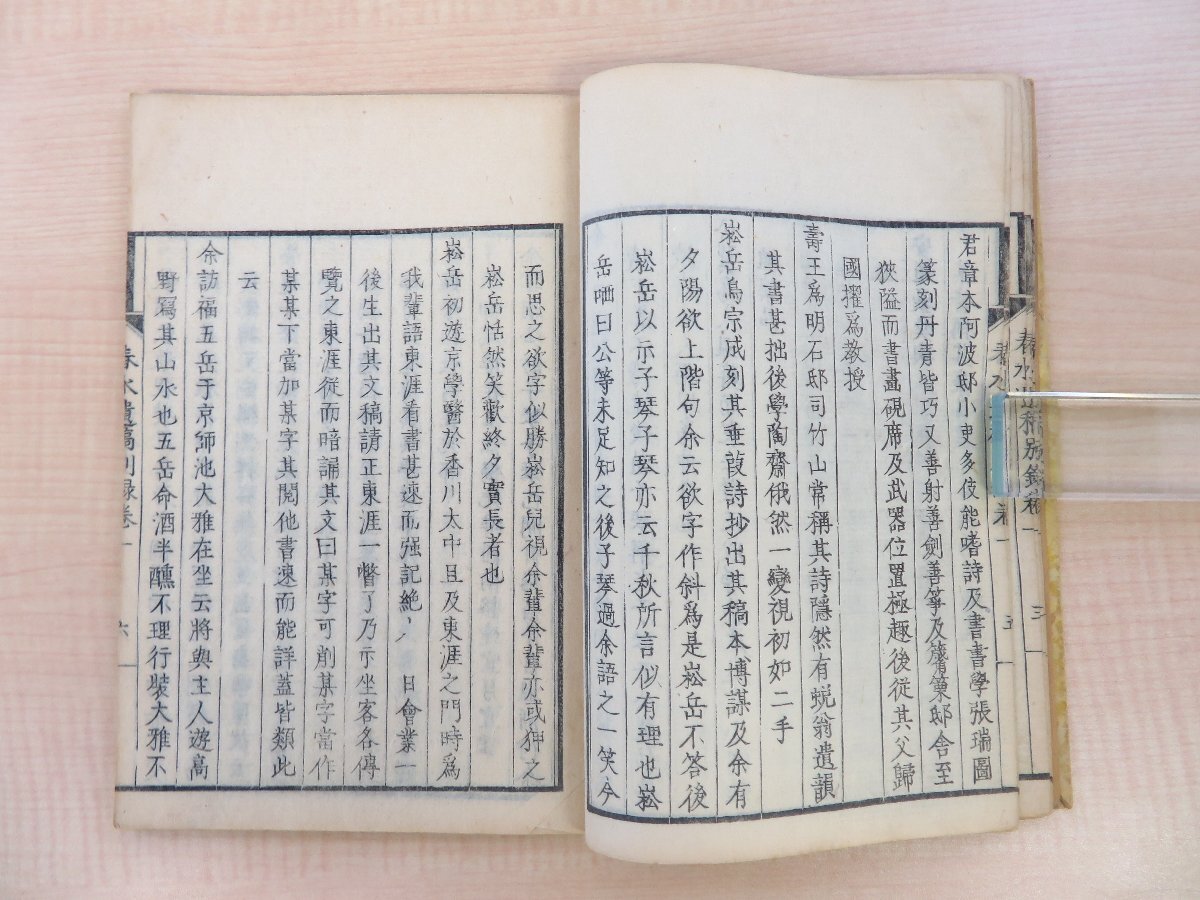 君章本阿波邸小吏多伎能嗜詩及書書學張瑞圖
篆刻丹青皆巧又善射善劍善箏及篳篥邸舍至
狹隘而書畫硯席及武器位置極趣後從其父歸
國擢爲敎授
壽王爲明石邸司竹山常稱其詩隱然有蛻翁遺韻
其書甚拙後學陶齋俄然一變視初如二手
崧岳鳥宗成刻其垂葭詩抄出其稿本博謀及余有
夕陽欲上階句余云欲字作斜爲是崧岳不答後
崧岳以示子琴子琴亦云千秋所言似有理也崧
岳哂曰公等未足知之後子琴過余語之一笑今
而思之欲字似勝崧岳兒視余輩余輩亦或狎之
崧岳恬然笑歡終夕實長者也
崧岳初遊京學醫於香川太中且及東涯之門時爲
我輩語東涯看書甚速而强記絶人日會業一
後生出其文稿請正東涯一瞥了乃示坐客各傳
覽之東涯從而暗誦其文曰某字可削某字當作
某某下當加某字其閲他書速而能詳蓋皆類此
云
余訪福五岳于京師池大雅在坐云將與主人遊高
野寫其山水也五岳命酒半醺不理行裝大雅不
春水遺稿別錄卷一
六
五
春水遺稿別錄卷一
三